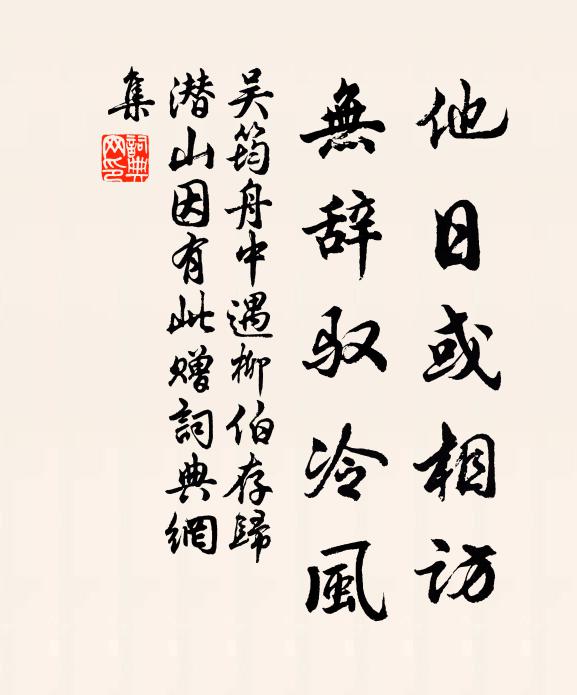 他日或相访
無辞驭冷風
吴筠舟中遇柳伯存歸
潜山因有此赠詞典網
集
詞典网印